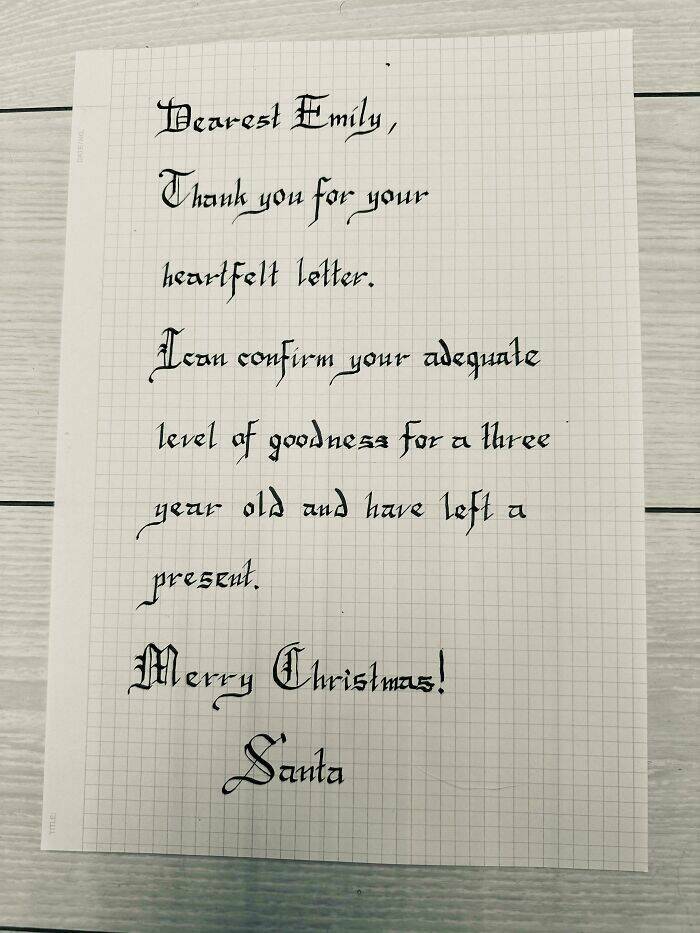 Dearest Emily,
Thank you for your
heartfelt letter.
I can confirm your adequate
level of goodness for a three
year old and have left a
present.
Merry Christmas!
Santa
TITLE:
DATE/NO.